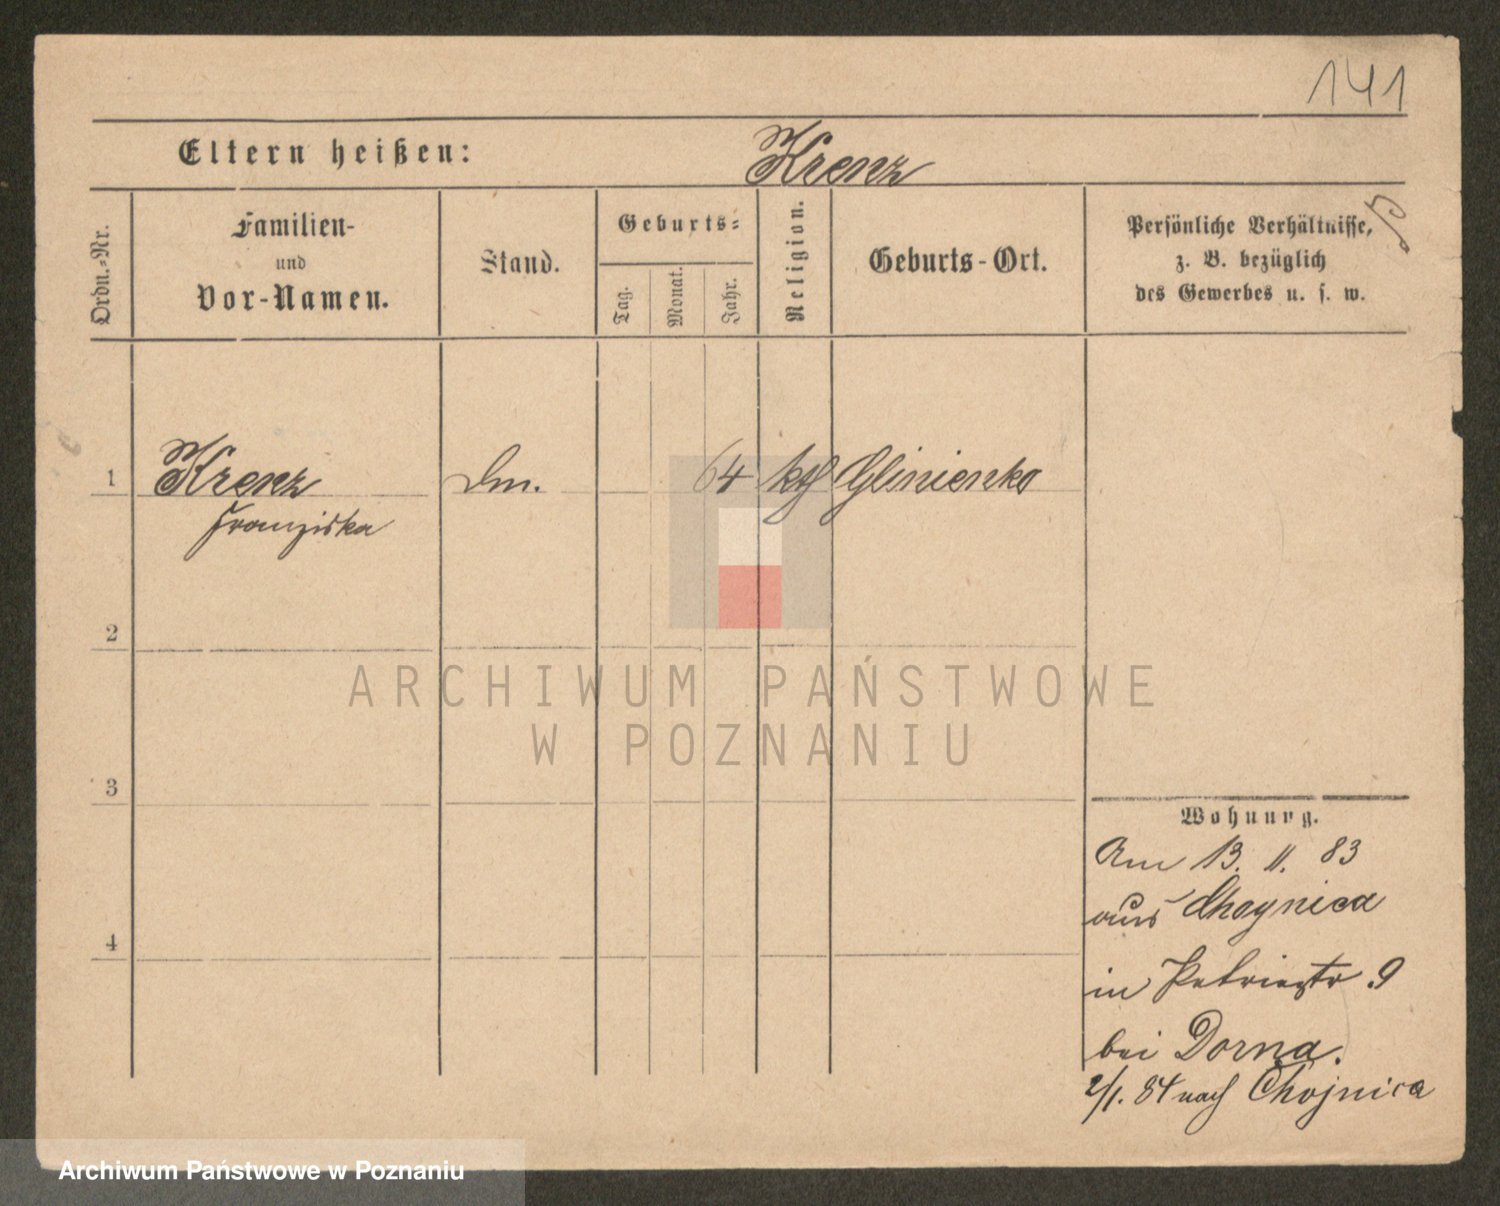 141
Eltern heißen: Krenz
Ordn.-Nr.
Familien-
und
Vor-Namen.
Stand.
Geburts-
Tag.
Monat.
Jahr.
Religion.
Geburts-Ort.
Persönliche Verhältnisse,
z. B. bezüglich
des Gewerbes u. s. w.
1 Krenz Dm. 64 kth Glinienko
Franziska
2
3
4
Wohnung.
Am 13. 11. 83
aus Choynica
in Petristr. 9
bei Dorna.
2/1. 84 nach Chojnica
ARCHIWUM PAŃSTWOWE
W POZNANIU
Archiwum Państwowe w Poznaniu